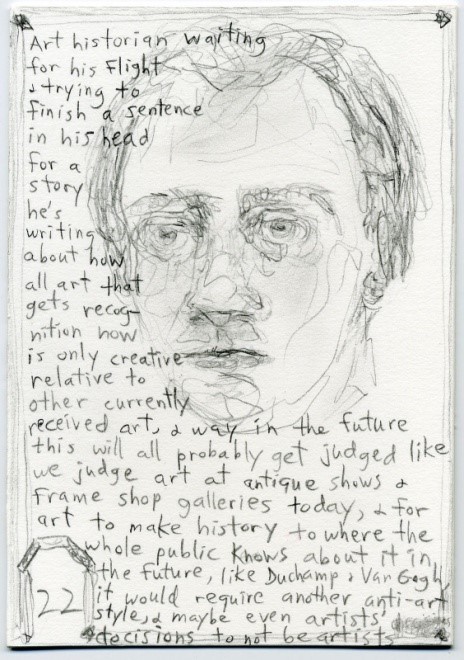 Art historian waiting
for his flight
& trying to
finish a sentence
in his head
for a
story
he's
writing
about how
all art that
gets recog-
nition now
is only creative
relative to
other currently
received art, & way in the future
this will all probably get judged like
we judge art at antique shows &
frame shop galleries today, & for
art to make history to where the
whole public knows about it in
the future, like Duchamp & Van Gogh,
it would require another anti-art
style, & maybe even artists'
decisions to not be artists
22